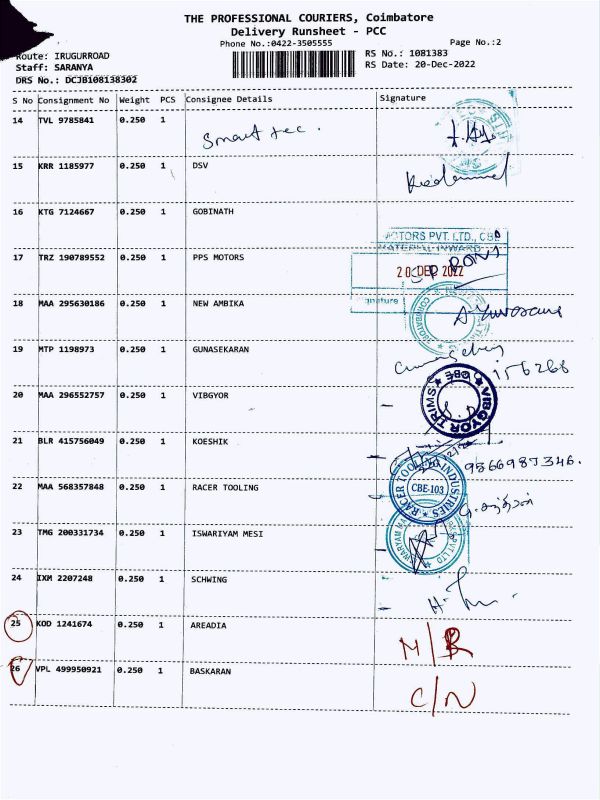 THE PROFESSIONAL COURIERS, Coimbatore
Delivery Runsheet - PCC
Phone No.:0422-3505555
Page No.:2
Route: IRUGURROAD
RS No.: 1081383
Staff: SARANYA
RS Date: 20-Dec-2022
DRS No.: DCJB108138302
S No Consignment No Weight PCS Consignee Details Signature
14 TVL 9785841 0.250 1 Smart tec.
15 KRR 1185977 0.250 1 DSV
16 KTG 7124667 0.250 1 GOBINATH
MOTORS PVT. LTD., CBE
MATERIAL INWARD
17 TRZ 190789552 0.250 1 PPS MOTORS
20 DEC 2022
18 MAA 295630186 0.250 1 NEW AMBIKA
19 MTP 1198973 0.250 1 GUNASEKARAN
156268
20 MAA 296552757 0.250 1 VIBGYOR
VIBGYOR TRIMS CBE
21 BLR 415756049 0.250 1 KOESHIK
9566987346.
22 MAA 568357848 0.250 1 RACER TOOLING
RACER TOOLING INDUSTRIES
CBE-103
23 TMG 200331734 0.250 1 ISWARIYAM MESI
24 IXM 2207248 0.250 1 SCHWING
25 KOD 1241674 0.250 1 AREADIA
M/R
26 VPL 499950921 0.250 1 BASKARAN
C/N